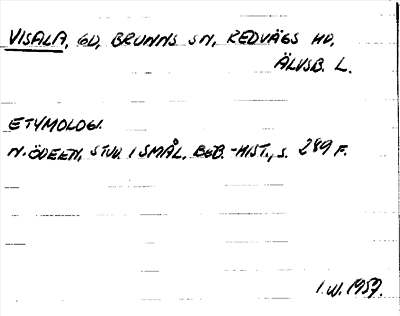 VISALA, GD, BRUNNS SN, REDVÄGS HD,
ÄLVSB. L.
ETYMOLOGI.
N. ÖDEEN, STUD. I SMÅL. BEB.-HIST., S. 289 F.
I.W. 1957.